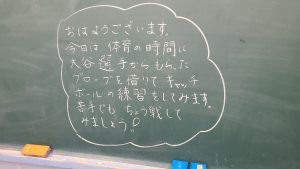 おはようございます。
今日は 体育の時間に
大谷選手からもらった
グローブを借りて キャッチ
ボールの練習をしてみます。
苦手でも ちょう戦して
みましょう。